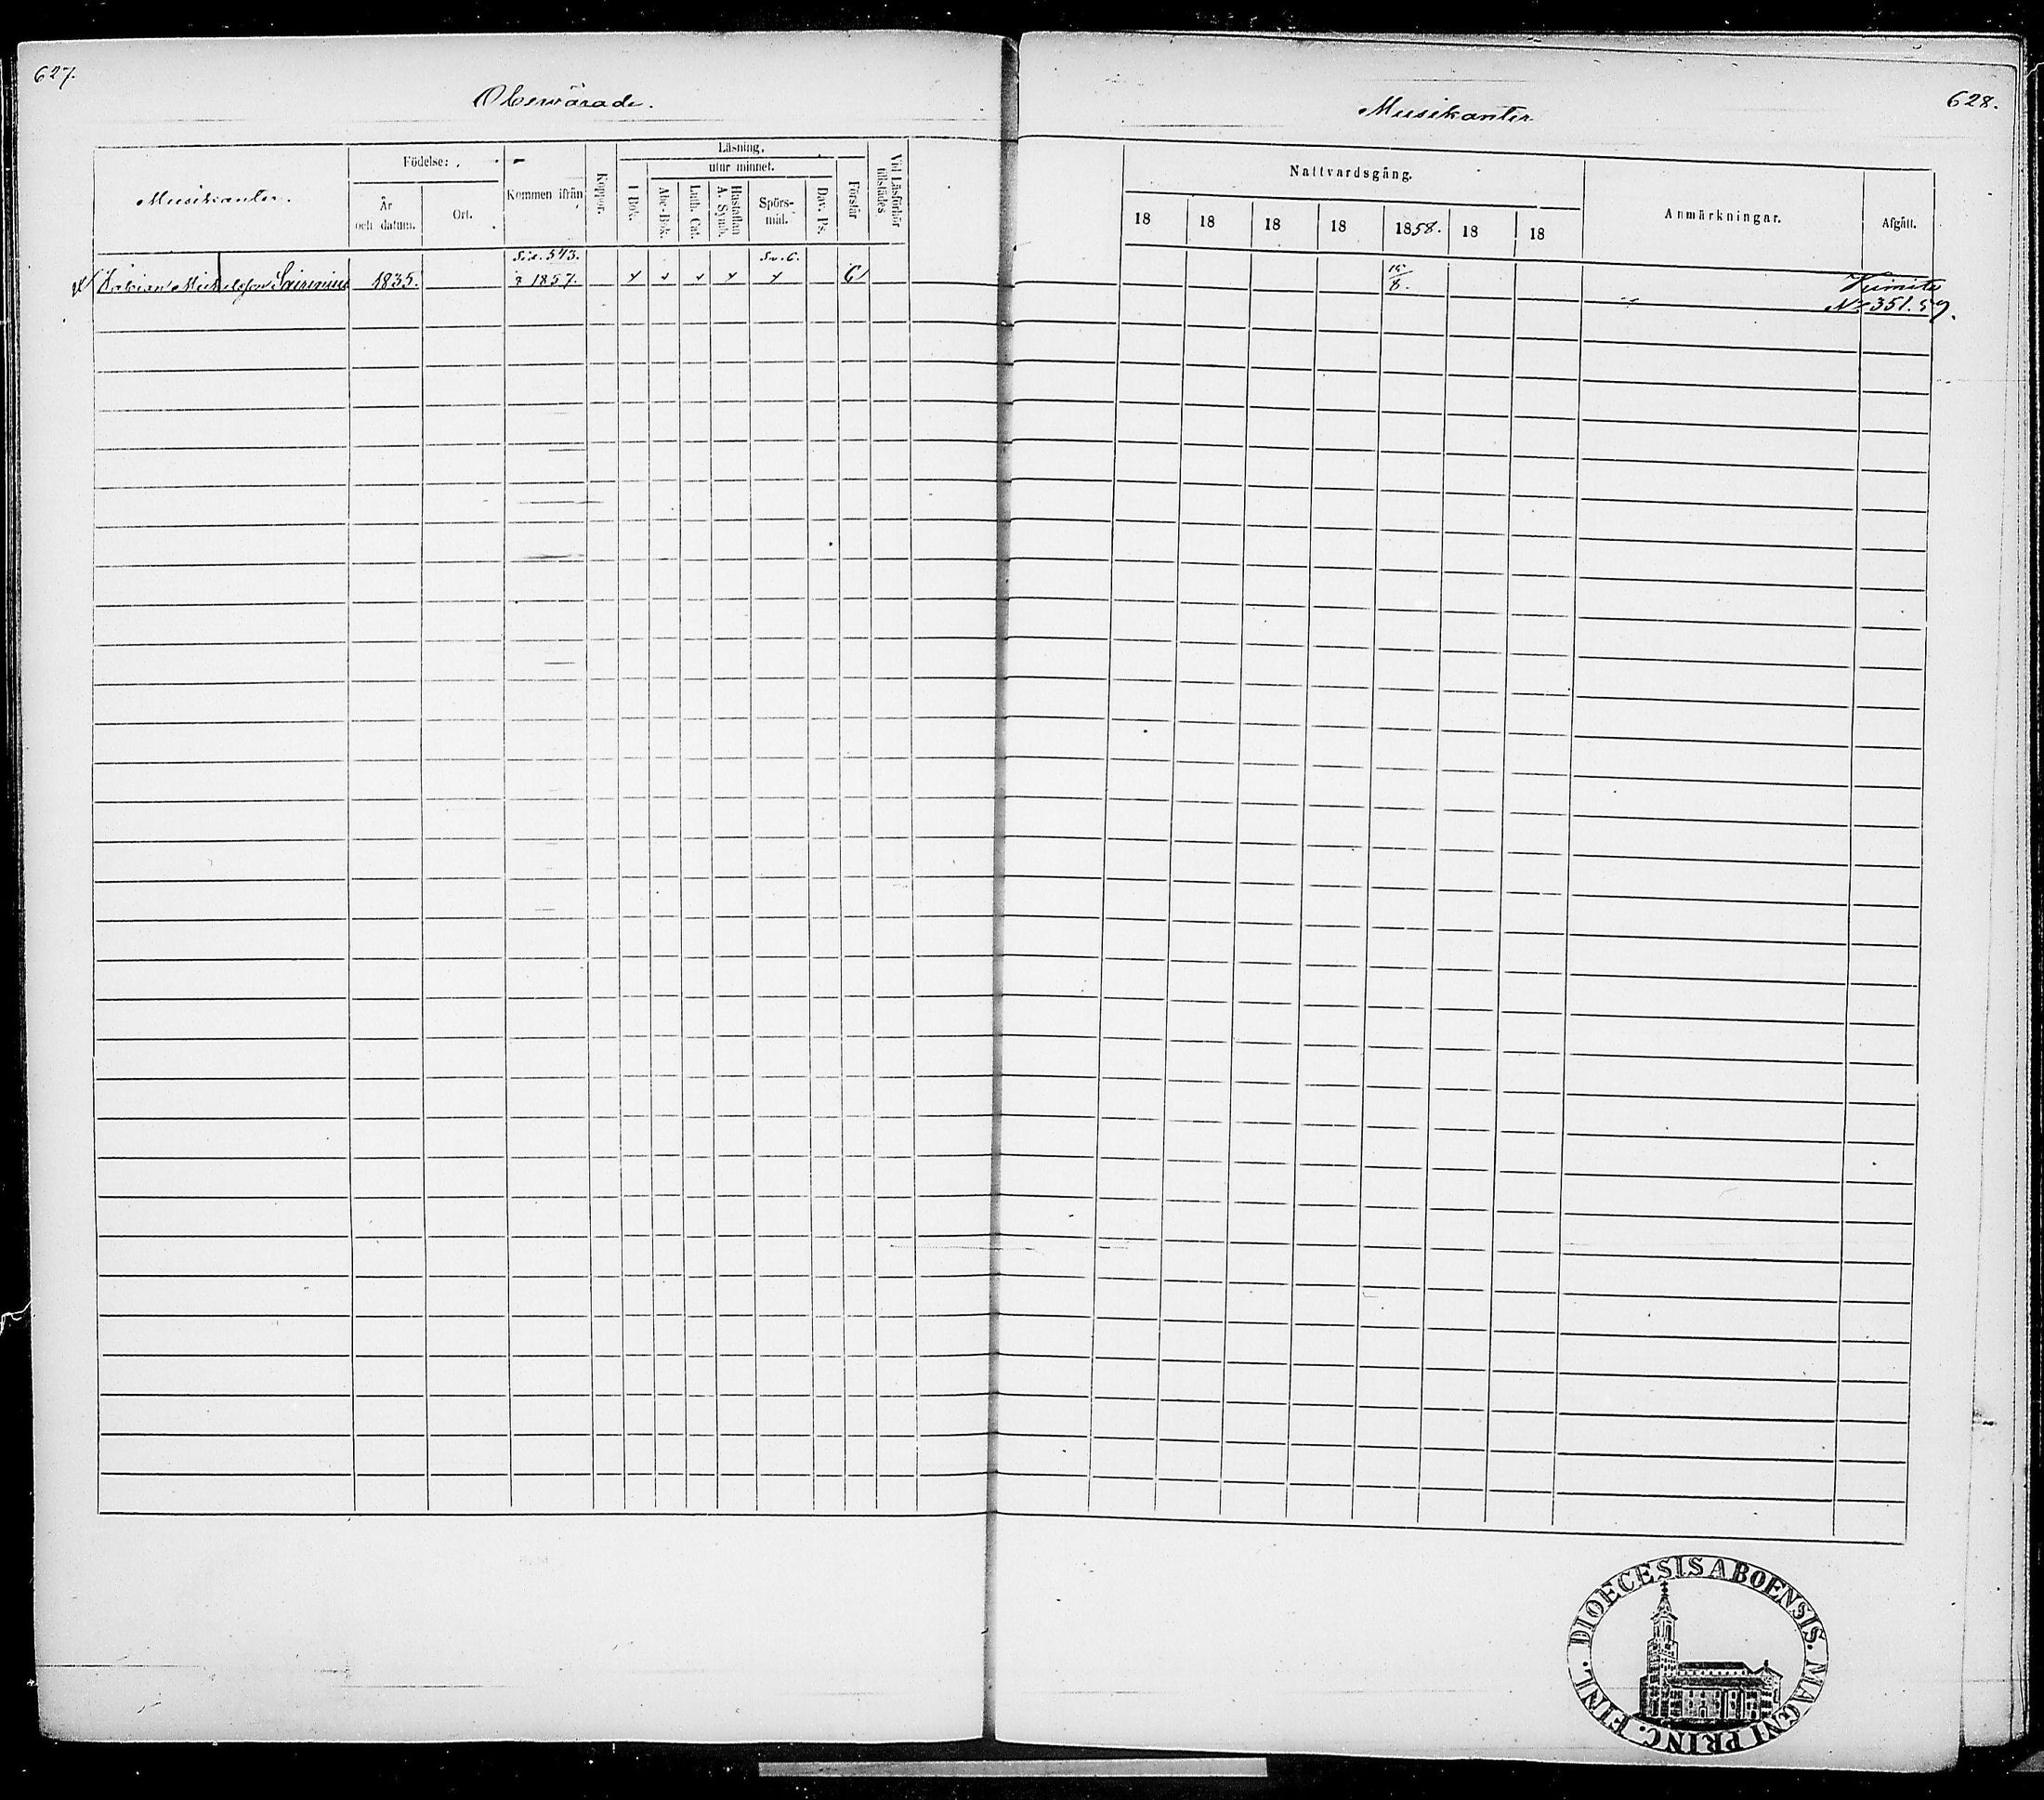 627.
Obeswärade.
Musikanter.
Födelse:
År
och datum.
Ort.
Kommen ifrån
Koppor.
Läsning.
utur minnet.
I Bok.
Abc-Bok.
Luth. Cat.
Hustaflan
A. Symb.
Spörs-
mål.
Dav. Ps.
Förstår
Vid Läsförhör
tillstädes
Sid. 543.
Sv. C.
Michelsson
1835.
1857.
628.
Musikanter
Nattvardsgång.
18
18
18
18
1858.
18
18
Anmärkningar.
Afgått.
15/8.
Kimito
No 351. 59.
DIOECESIS ABOENSIS. MAGNI PRINC. FINL.